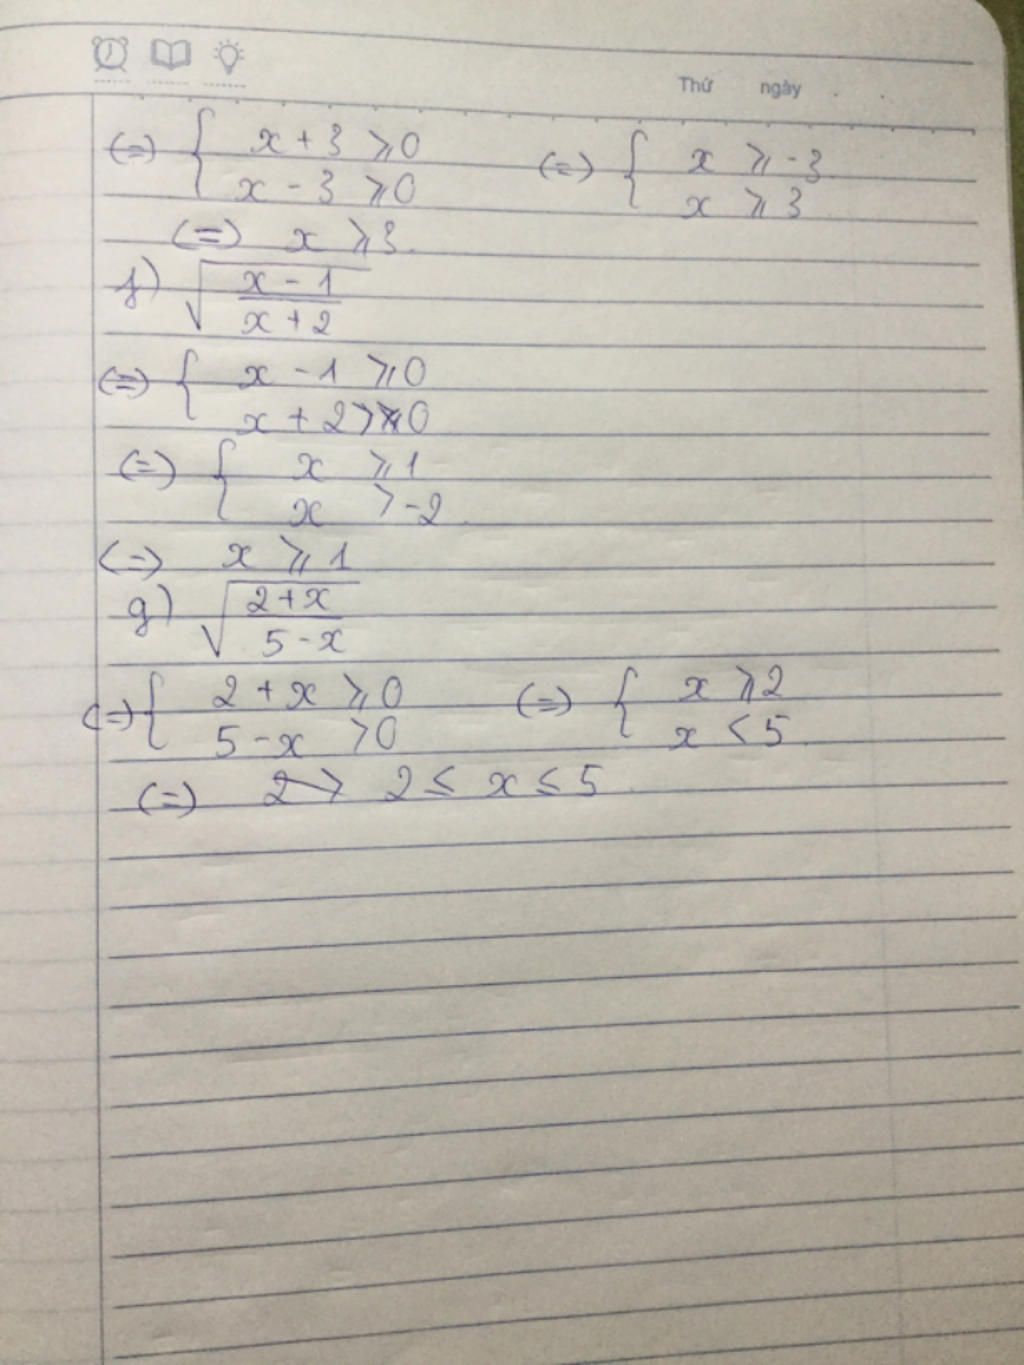 Thứ ngày
(=) { x + 3 ⩾ 0 (=) { x ⩾ -3
x - 3 ⩾ 0 x ⩾ 3
(=) x ⩾ 3.
f) √((x - 1)/(x + 2))
(=) { x - 1 ⩾ 0
x + 2 > 0
(=) { x ⩾ 1
x > -2
(=) x ⩾ 1
g) √((2 + x)/(5 - x))
(=) { 2 + x ⩾ 0 (=) { x ⩾ 2
5 - x > 0 x < 5
(=) 2 ≤ x ≤ 5